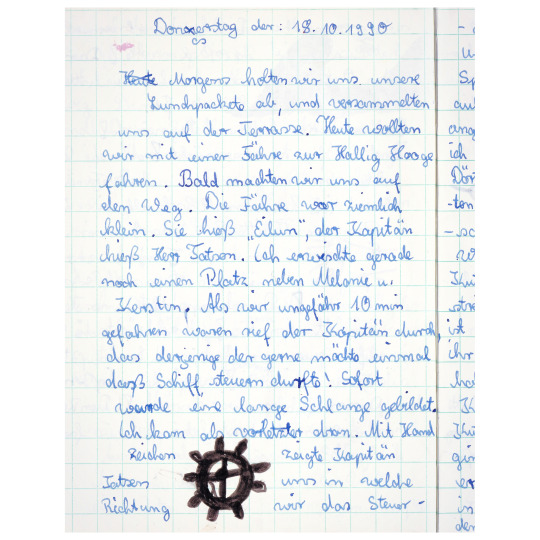 Donnerstag der: 18.10.1990
Morgens holten wir uns unsere
Lunchpackete ab, und versammelten
uns auf der Terrasse. Heute wollten
wir mit einer Fähre zur Hallig Hooge
fahren. Bald machten wir uns auf
den Weg. Die Fähre war ziemlich
klein. Sie hieß „Eilun“, der Kapitän
hieß Herr Tatsen. Ich erwischte gerade
noch einen Platz neben Melanie u.
Kerstin. Als wir ungefähr 10 min
gefahren waren rief der Kapitän durch,
das derjenige der gerne möchte einmal
daß Schiff steuern durfte! Sofort
wurde eine lange Schlange gebildet.
Ich kam als vorletzter dran. Mit Hand
Zeichen zeigte Kapitän
Tatsen uns in welche
Richtung wir das Steuer-